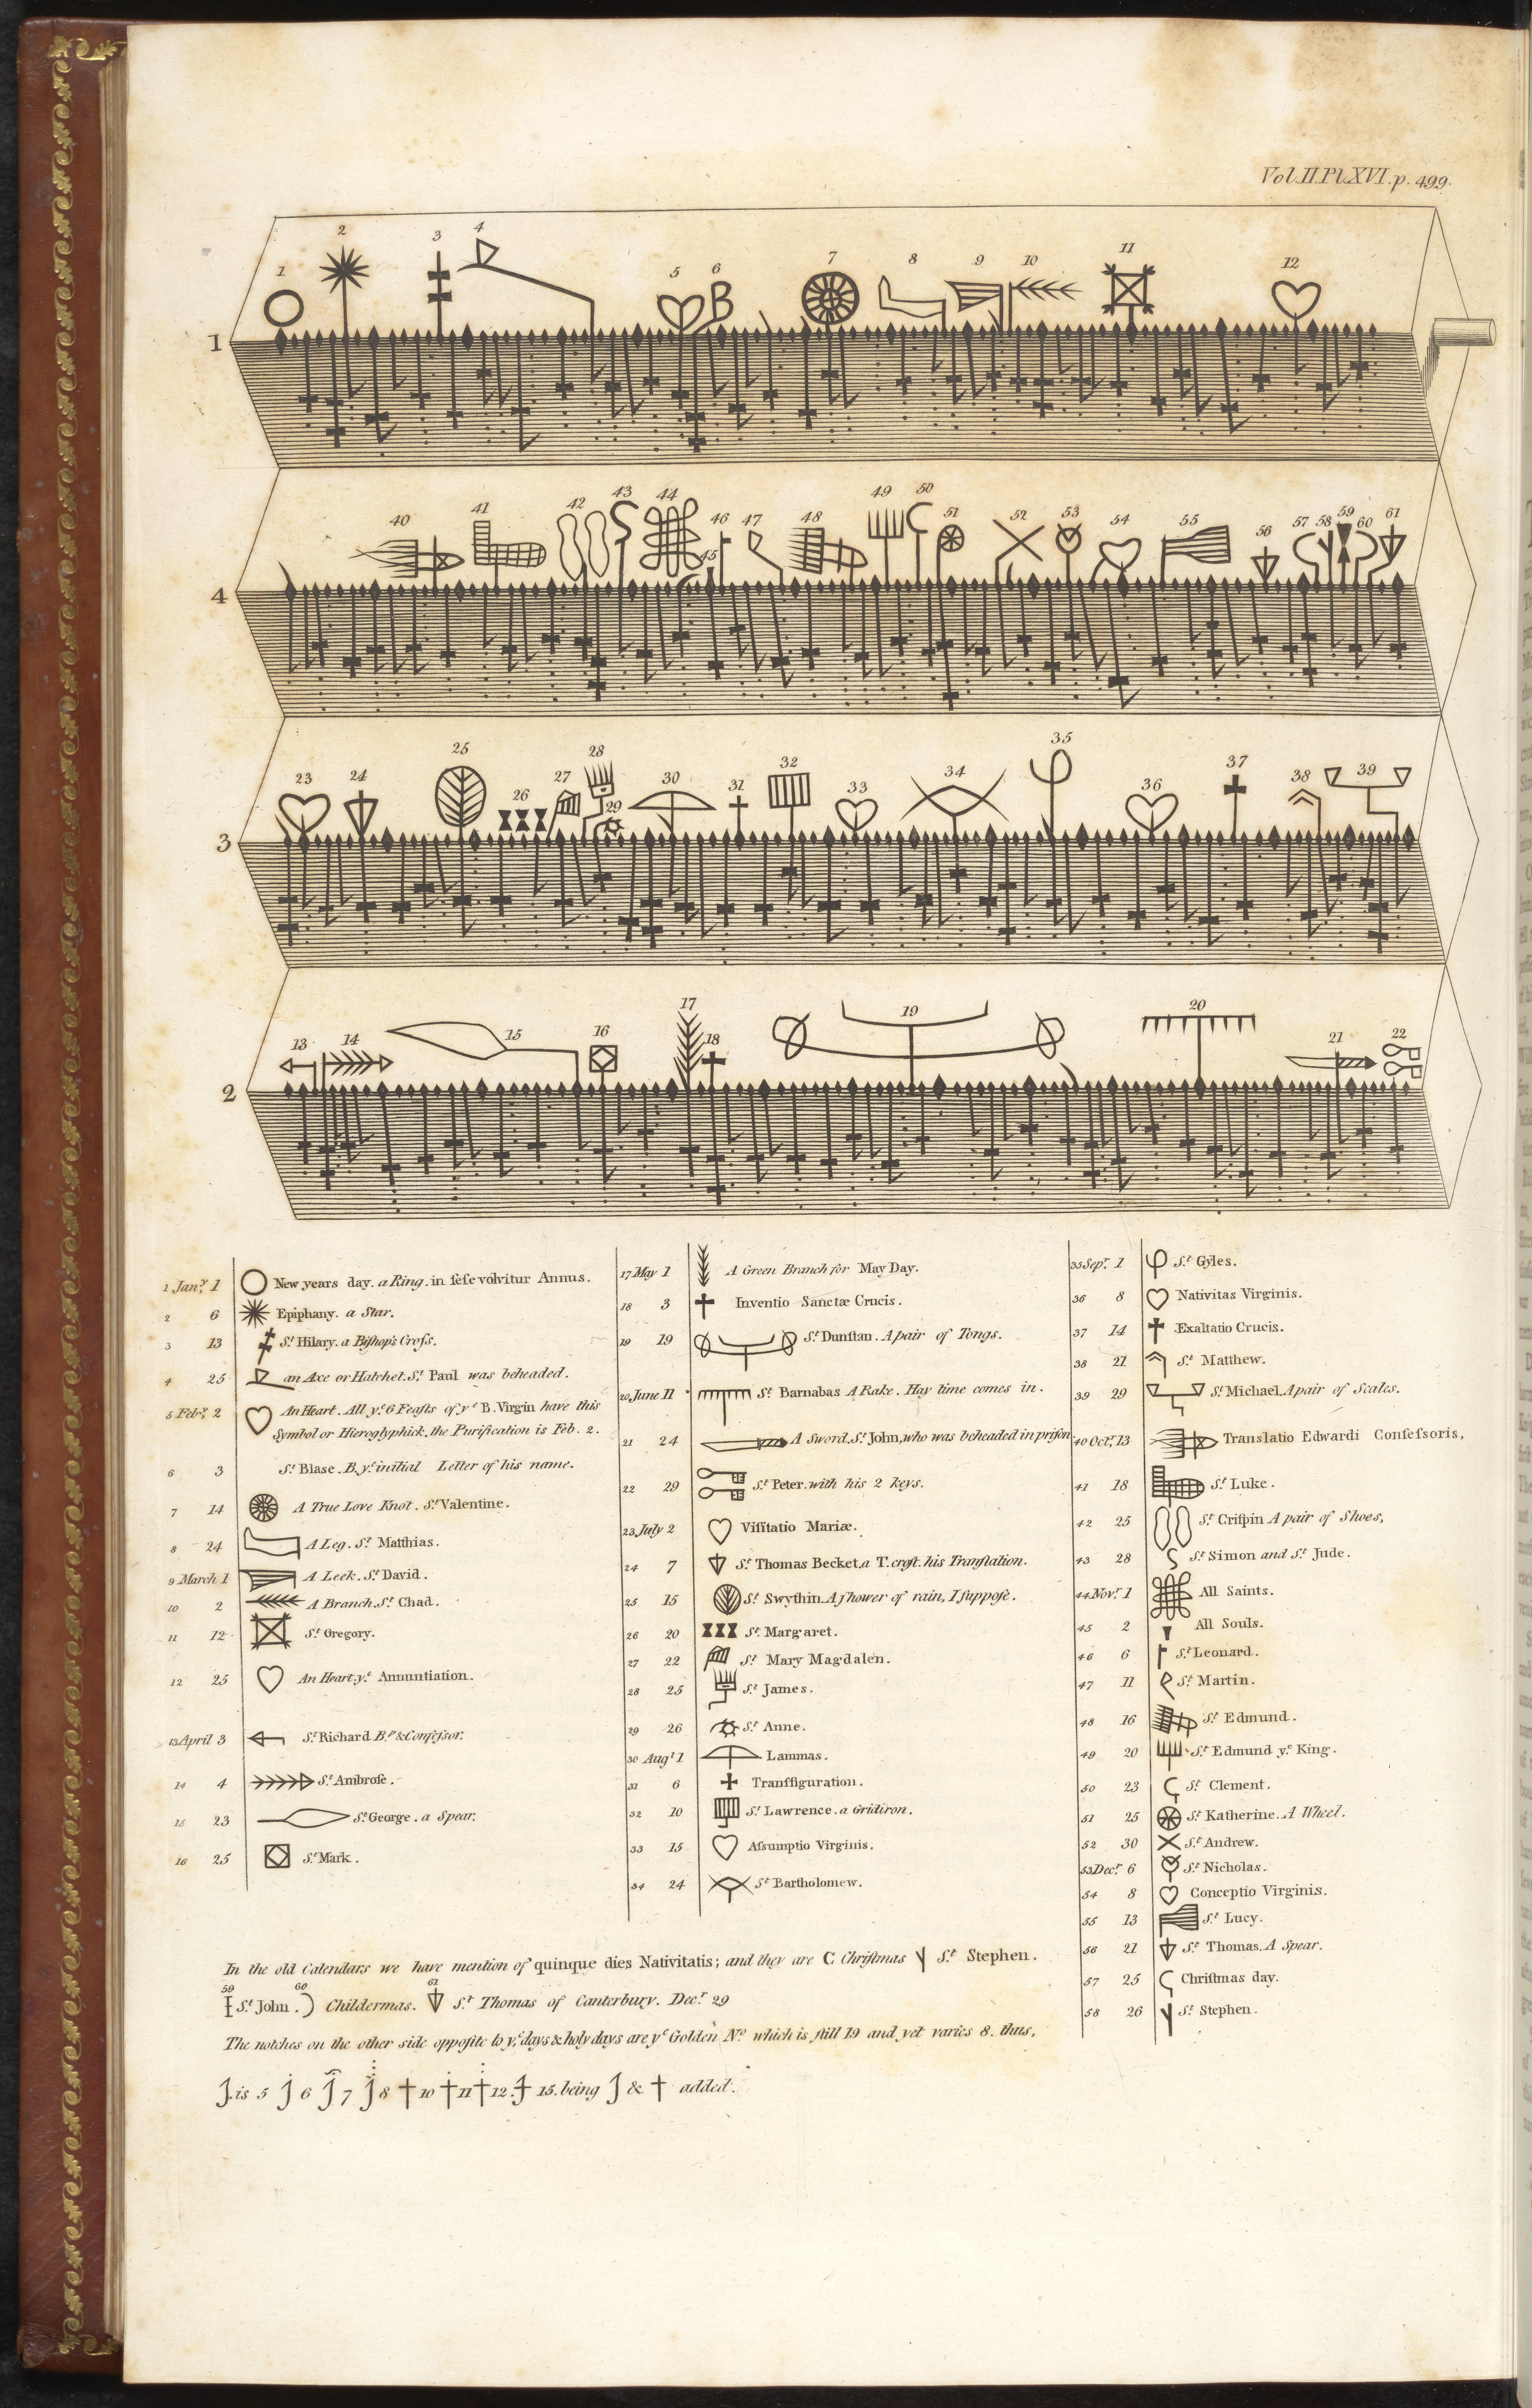 Vol.II.Pl.XVI.p. 499.
1 2 3 4 5 6 7 8 9 10 11 12
B
1
40 41 42 43 44 45 46 47 48 49 50 51 52 53 54 55 56 57 58 59 60 61
4
23 24 25 26 27 28 29 30 31 32 33 34 35 36 37 38 39
3
13 14 15 16 17 18 19 20 21 22
2
1 Jan.y 1 New years day. a Ring. in seſe volvitur Annus.
2 6 Epiphany. a Star.
3 13 S.t Hilary. a Biſhop's Croſs.
4 25 an Axe or Hatchet. S.t Paul was beheaded.
5 Feb.y 2 An Heart. All y.e 6 Feaſts of y.e B. Virgin have this
Symbol or Hieroglyphick. the Purification is Feb. 2.
6 3 S.t Blase. B. y.e initial Letter of his name.
7 14 A True Love Knot. S.t Valentine.
8 24 A Leg. S.t Matthias.
9 March 1 A Leek. S.t David.
10 2 A Branch. S.t Chad.
11 12 S.t Gregory.
12 25 An Heart. y.e Annuntiation.
13 April 3 S.t Richard B.p & Confeſsor.
14 4 S.t Ambroſe.
15 23 S.t George. a Spear.
16 25 S.t Mark.
17 May 1 A Green Branch for May Day.
18 3 Inventio Sanctæ Crucis.
19 19 S.t Dunſtan. A pair of Tongs.
20 June 11 S.t Barnabas A Rake. Hay time comes in.
21 24 A Sword. S.t John, who was beheaded in priſon
22 29 S.t Peter. with his 2 keys.
23 July 2 Viſitatio Mariæ.
24 7 S.t Thomas Becket. a T. croſt. his Tranſlation.
25 15 S.t Swythin. A ſhower of rain, I ſuppoſe.
26 20 S.t Margaret.
27 22 S.t Mary Magdalen.
28 25 S.t James.
29 26 S.t Anne.
30 Aug.t 1 Lammas.
31 6 Tranſfiguration.
32 10 S.t Lawrence. a Gridiron.
33 15 Aſsumptio Virginis.
34 24 S.t Bartholomew.
35 Sep.r 1 S.t Gyles.
36 8 Nativitas Virginis.
37 14 Exaltatio Crucis.
38 21 S.t Matthew.
39 29 S.t Michael. A pair of Scales.
40 Oct.r 13 Translatio Edwardi Confeſsoris,
41 18 S.t Luke.
42 25 S.t Criſpin A pair of Shoes,
43 28 S.t Simon and S.t Jude.
44 Nov.r 1 All Saints.
45 2 All Souls.
46 6 S.t Leonard.
47 11 S.t Martin.
48 16 S.t Edmund.
49 20 S.t Edmund y.e King.
50 23 S.t Clement.
51 25 S.t Katherine. A Wheel.
52 30 S.t Andrew.
53 Dec.r 6 S.t Nicholas.
54 8 Conceptio Virginis.
55 13 S.t Lucy.
56 21 S.t Thomas. A Spear.
57 25 Chriſtmas day.
58 26 S.t Stephen.
In the old Calendars we have mention of quinque dies Nativitatis; and they are C Chriſtmas S.t Stephen.
59 60 61
S.t John. Childermas. S.t Thomas of Canterbury. Dec.r 29
The notches on the other side opposite to y.e days & holy days are y.e Golden N.o which is ſtill 19 and yet varies 8. thus,
is 5 6 7 8 10 11 12 15. being & added.